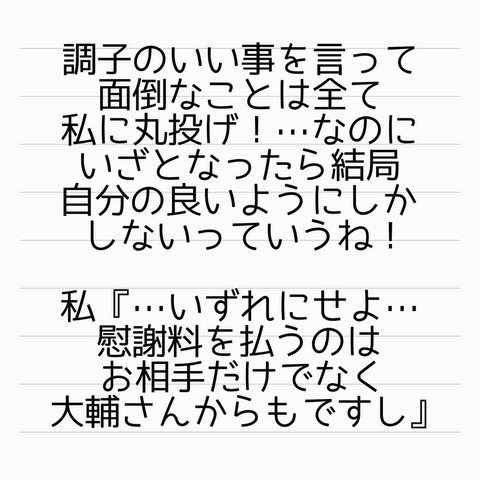 調子のいい事を言って
面倒なことは全て
私に丸投げ！…なのに
いざとなったら結局
自分の良いようにしか
しないっていうね！
私『…いずれにせよ…
慰謝料を払うのは
お相手だけでなく
大輔さんからもですし』